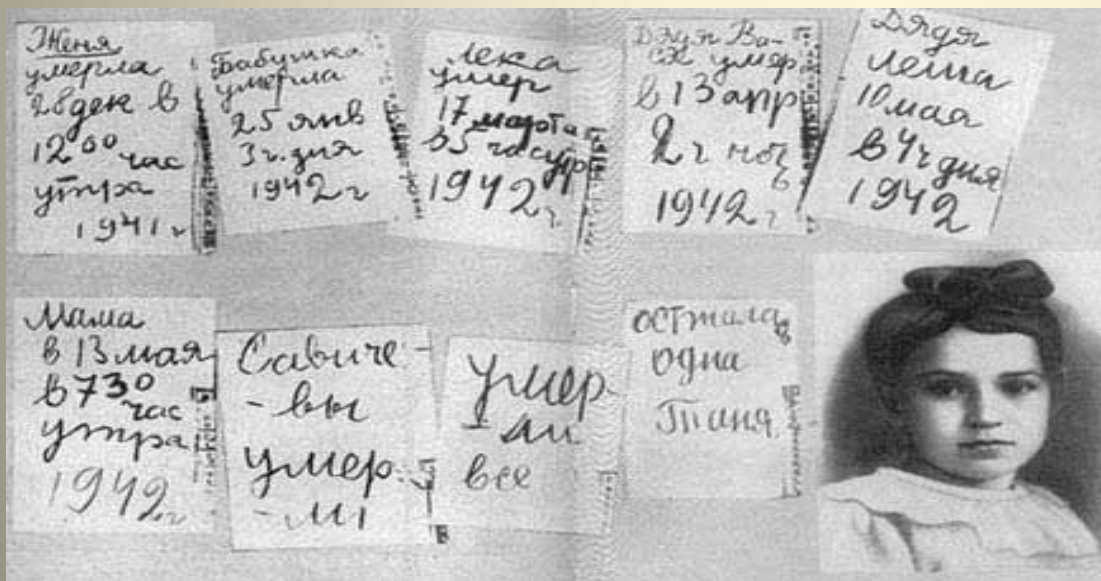 Женя
умерла
28 дек в
12 00 час
утра
1941 г
Бабушка
умерла
25 янв
3 ч. дня
1942 г
Лека
умер
17 марта
в 5 часутр
1942 г.
Дядя Ва-
ся умер
в 13 апр
2 ч ноч
1942 г
Дядя
Леша
10 мая
в 4 ч дня
1942
Мама
в 13 мая
в 7 30
час
утра
1942 г
Савиче-
-вы
умер
-ли
Умер-
-ли
все
осталась
одна
Таня